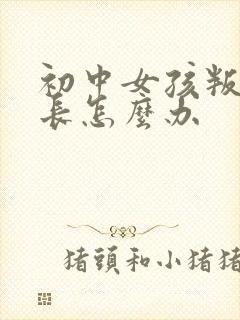 初中女孩叛
長怎麼办
猪頭和小猪猪